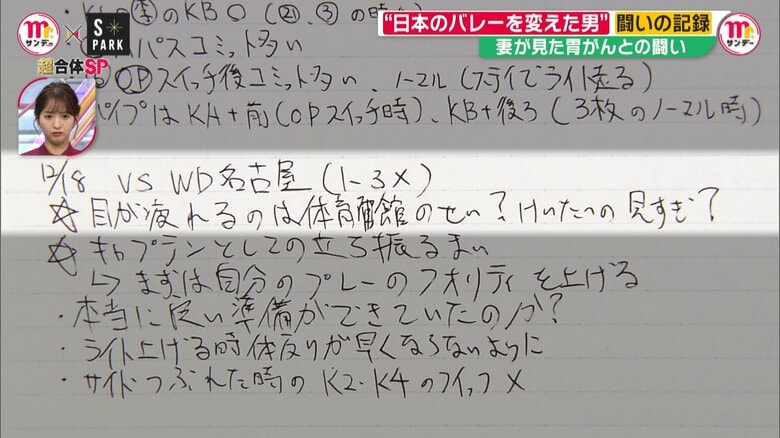 "日本のバレーを変えた男" 闘いの記録
妻が見た胃がんとの闘い
Mr.サンデー × S★PARK
超合体SP
のKB〇(㉑、③の時)
パスコミット多い
OPスイッチ後コミット多い、ノーマル(ステイでライト走る)
パイプはKA+前(OPスイッチ時)、KB+後ろ(3枚のノーマル時)
12/18 VS WD名古屋(1-3×)
☆目が疲れるのは体育館のせい?けいたいの見すぎ?
☆キャプテンとしての立ち振るまい
↳まずは自分のプレーのクオリティを上げる
・本当に良い準備ができていたのか?
・ライト上げる時体反りが早くならないように
・サイドつぶれた時のK2・K4のクイック×